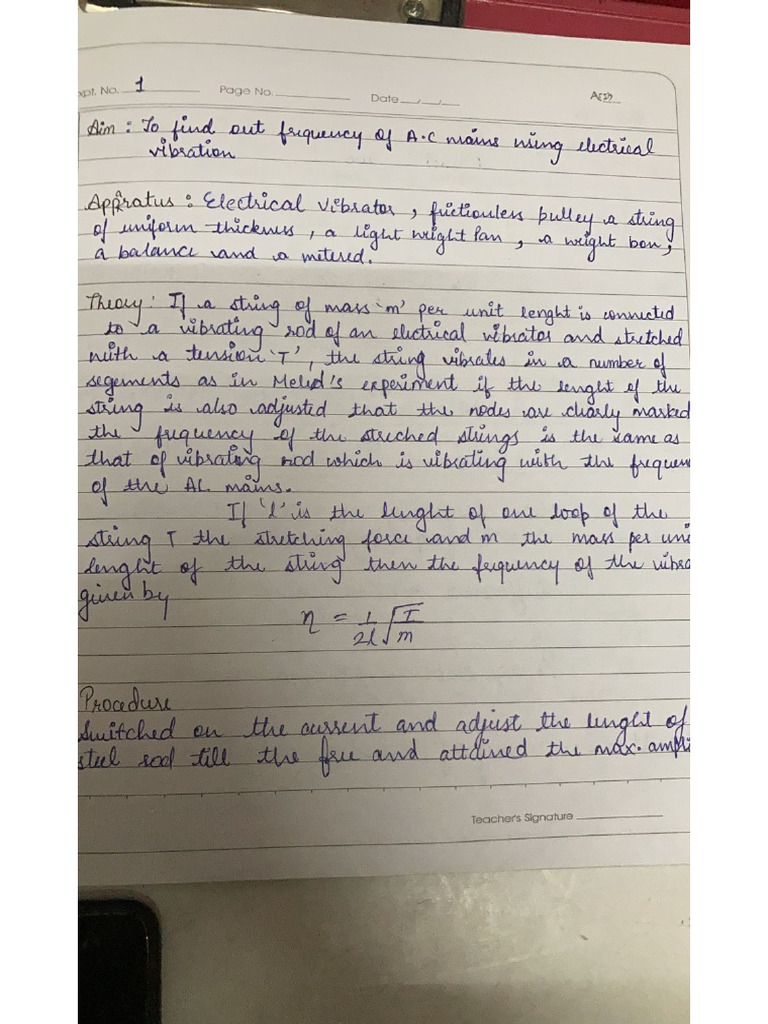 xpt. No. 1 Page No. Date
Aim : To find out frequency of A.C mains using electrical
vibration
Apparatus : Electrical Vibrator , frictionless pulley a string
of uniform thickness , a light weight Pan , a weight box ,
a balance and a metered.
Theory : If a string of mass 'm' per unit lenght is connected
to a vibrating rod of an electrical vibrator and stretched
with a tension 'T' , the string vibrates in a number of
segements as in Melid's experiment if the lenght of the
string is also adjusted that the nodes are clearly marked
the frequency of the streched strings is the same as
that of vibrating rod which is vibrating with the frequen
of the AC mains.
If 'l' is the lenght of one loop of the
string T the stretching force and m the mass per uni
lenght of the string then the fequency of the vibra
given by
η = 1/2l √T/m
Procedure
Switched on the current and adjust the lenght of
steel rod till the free and attained the max. ampli
Teacher's Signature